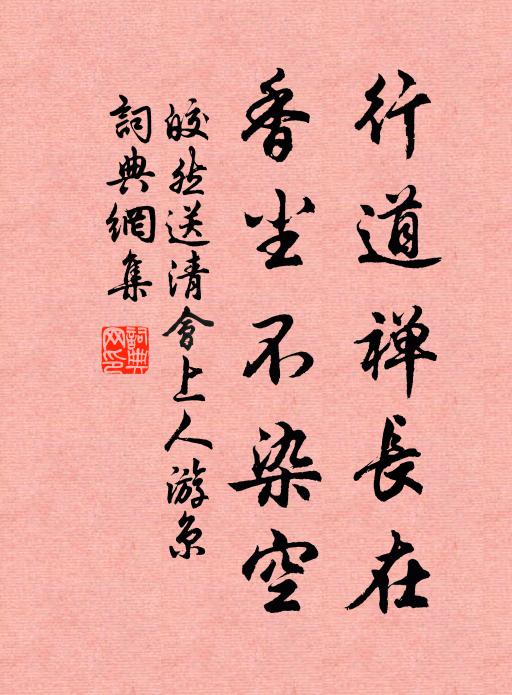 行道禅長在
香尘不染空
皎然送清會上人游京
詞典網集
詞典網印